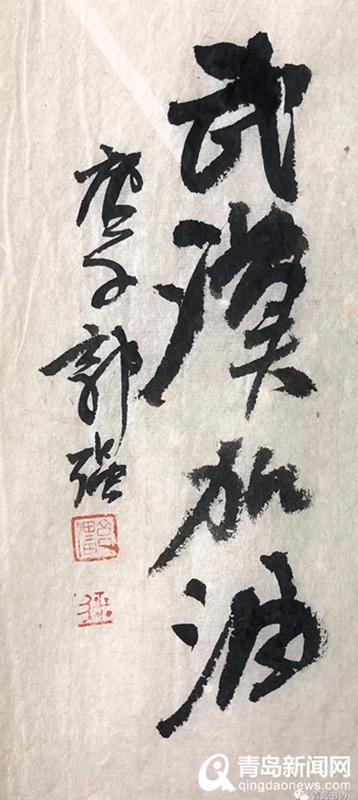 武漢加油
庚子郭强
青岛新闻网
qingdaonews.com